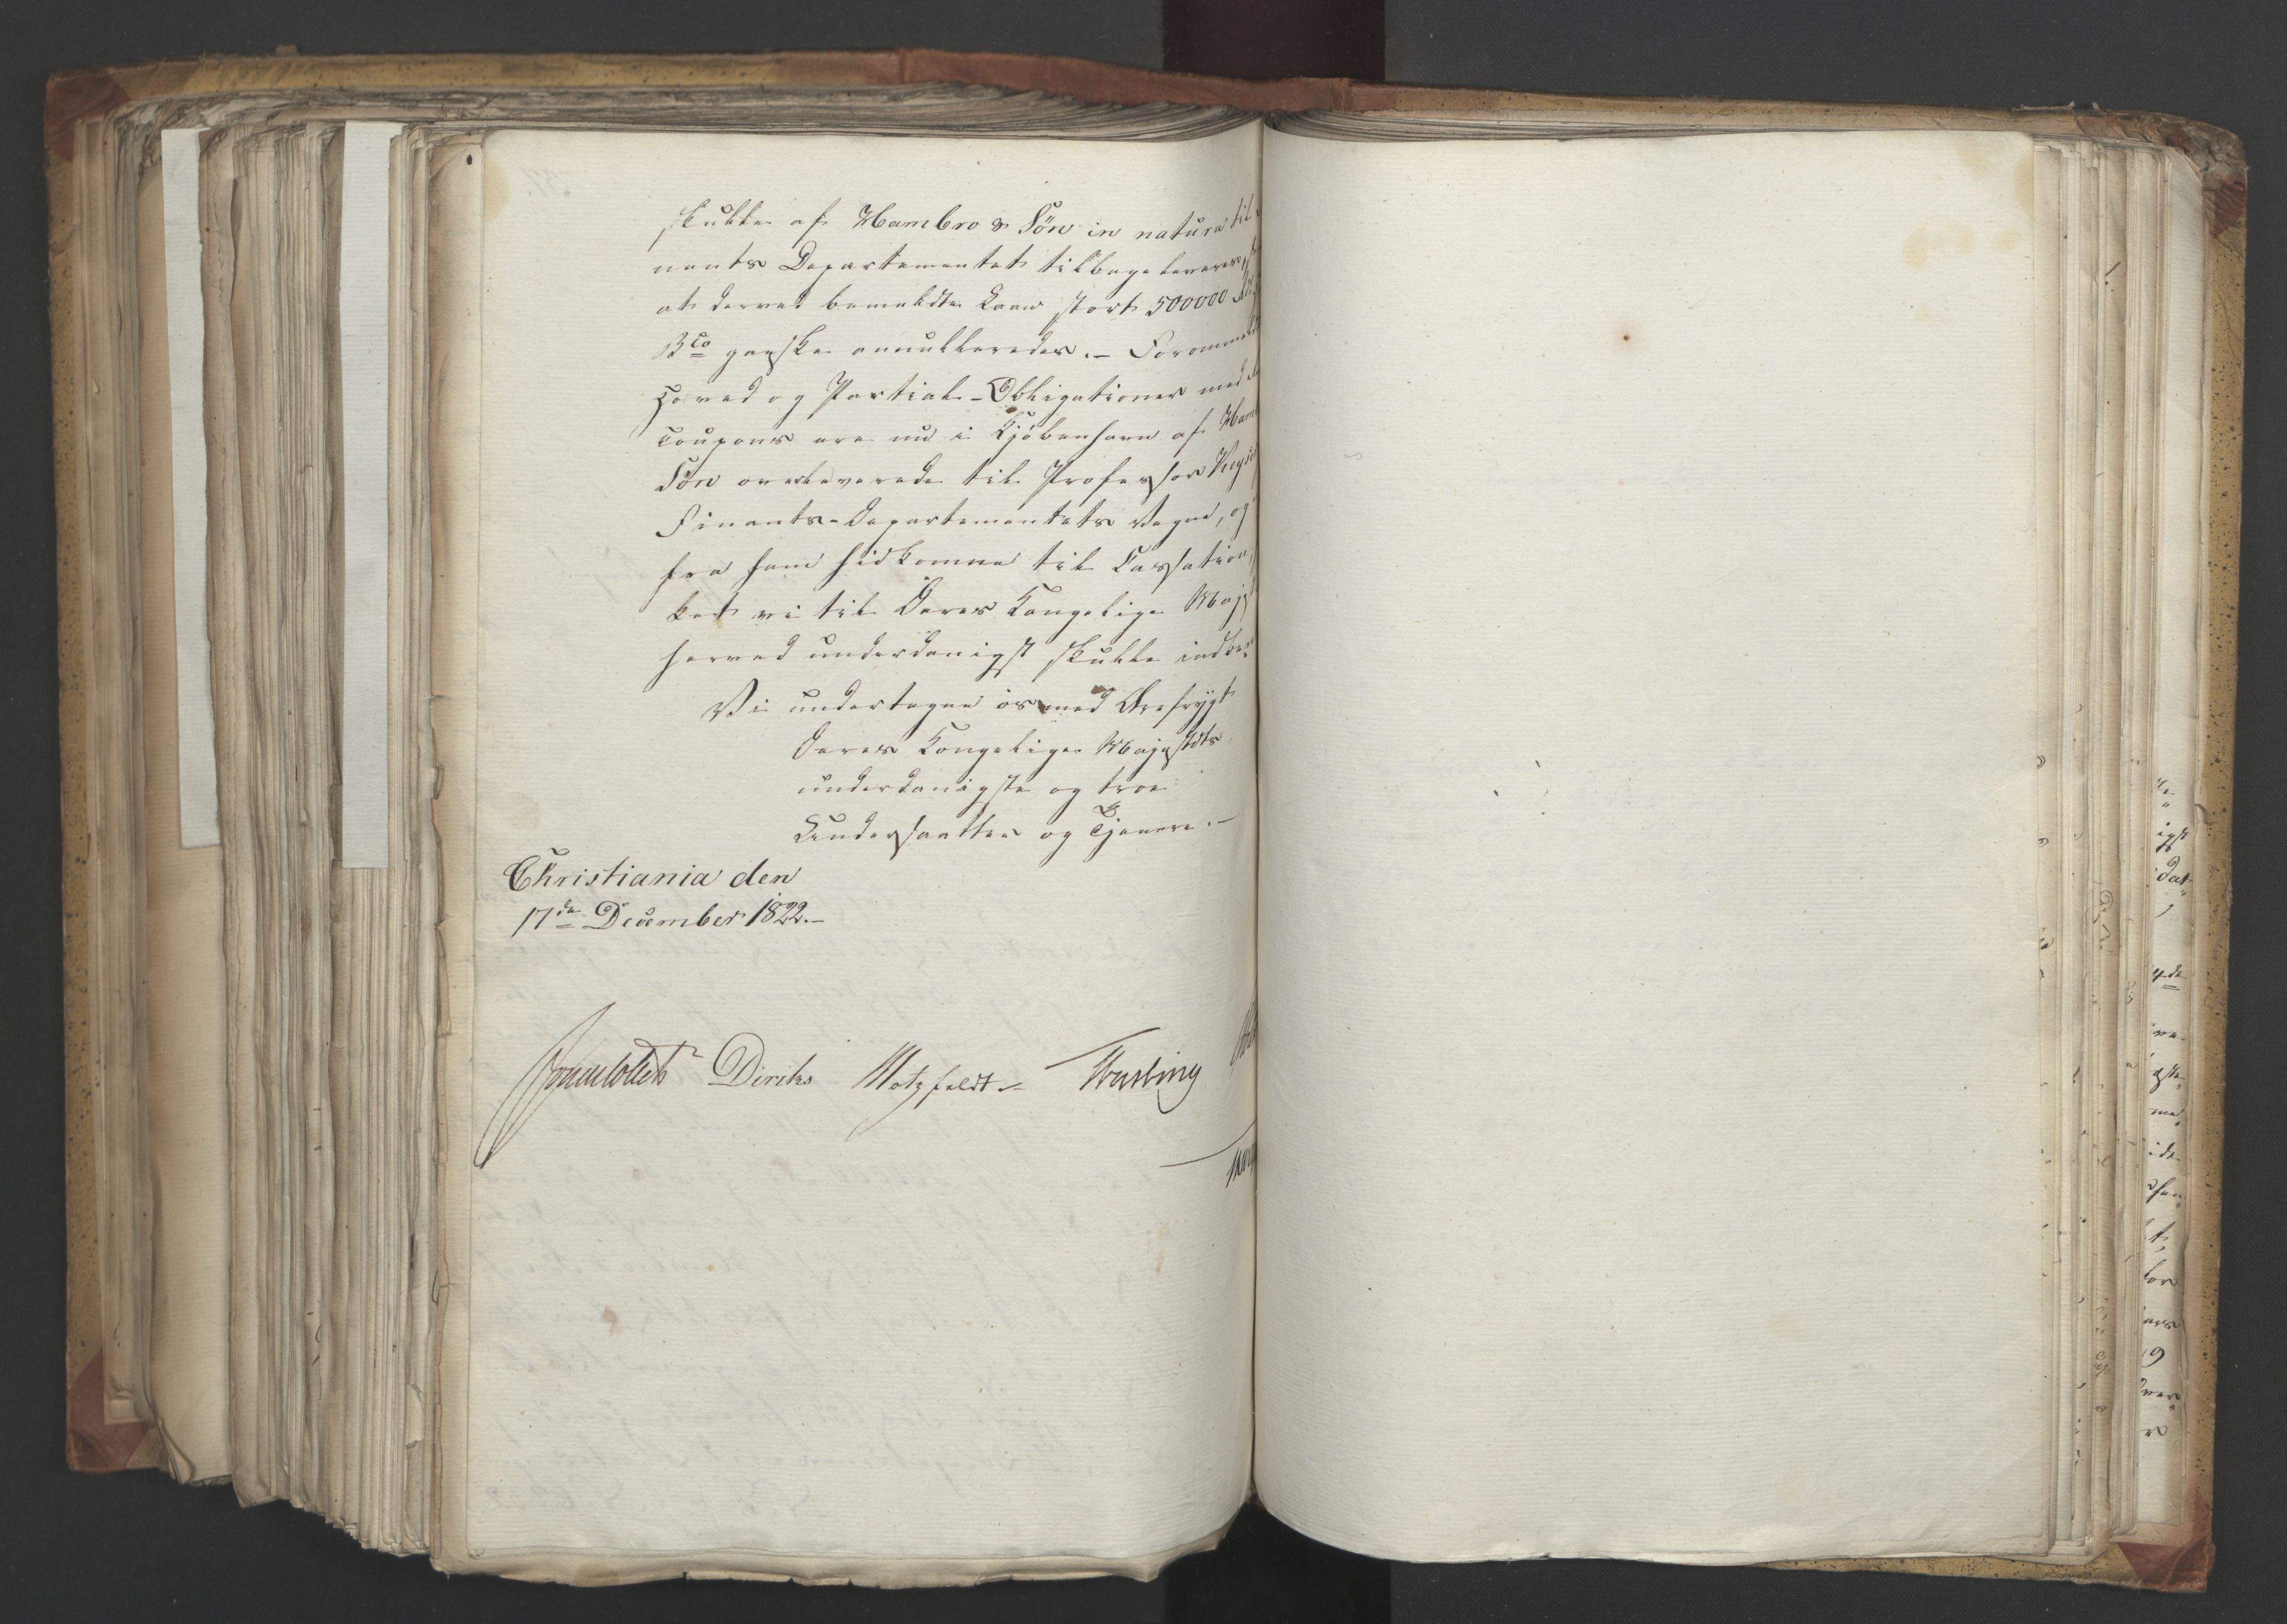 skulle af Hambro & Søn in natura til
nants Departementet tilbageleveres,
at derved bemeldte Laan stort 500000
Bco ganske annulleredes. – Forommeldte
Hoved og Partial-Obligationer med
Coupons ere nu i Kjöbenhavn af Ham
Søn overleverede til Professor
Finants-Departementets Vegne, og
fra ham hidkomne til Cassation,
ket vi til Deres Kongelige Maj
herved underdanigst skulle indbe
Vi undertegne os med Ærefrygt
Deres Kongelige Majestæts
underdanigste og troe
Undersaatter og Tjenere. –
Christiania den
17de December 1822. –
Sommerhielm Diriks Motzfeldt